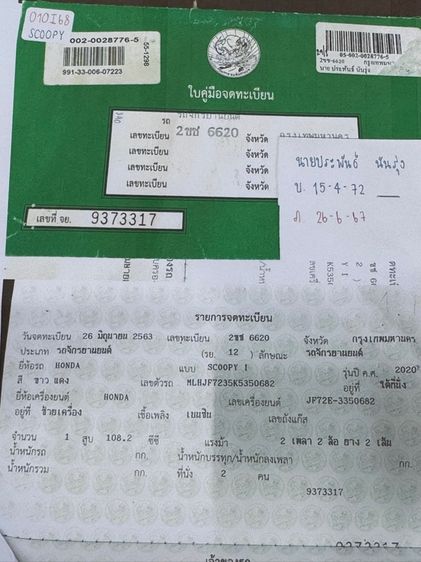 010I68
SCOOPY
002-0028776-5
991-33-006-07223
55-1298
05-002-0028776-5
2ขช-6620 กรุงเทพมหาน
นาย ประพันธ์ นันรุ่ง
ใบคู่มือจดทะเบียน
รถ รถจักรยานยนต์
เลขทะเบียน 2ขช 6620 จังหวัด กรุงเทพมหานคร
เลขทะเบียน จังหวัด
เลขทะเบียน จังหวัด
เลขทะเบียน จังหวัด
เลขที่ จย. 9373317
นายประพันธ์ นันรุ่ง
บ. 15-4-72
ภ. 26-6-67
รายการจดทะเบียน
วันจดทะเบียน 26 มิถุนายน 2563 เลขทะเบียน 2ขช 6620 จังหวัด กรุงเทพมหานคร
ประเภท รถจักรยานยนต์ (รย. 12 ) ลักษณะ รถจักรยานยนต์
ยี่ห้อรถ HONDA แบบ SCOOPY I รุ่นปี ค.ศ. 2020
สี ขาว แดง เลขตัวรถ MLHJF7235K5350682 อยู่ที่ ใต้ที่นั่ง
ยี่ห้อเครื่องยนต์ HONDA เลขเครื่องยนต์ JF72E-3350682
อยู่ที่ ซ้ายเครื่อง เชื้อเพลิง เบนซิน เลขถังแก๊ส
จำนวน 1 สูบ 108.2 ซีซี แรงม้า 2 เพลา 2 ล้อ ยาง 2 เส้น
น้ำหนักรถ กก. น้ำหนักบรรทุก/น้ำหนักลงเพลา กก.
น้ำหนักรวม กก. ที่นั่ง 2 คน
9373317
9373317
เจ้าของรถ